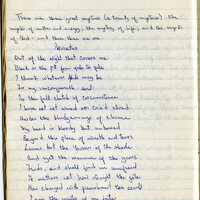 There are three great mysteries (a trinity of mysteries) the
mystery of matter and energy, the mystery of life, and the mystery
of God - and these three are one.
Invictus
Out of the night that covers me
Black as the pit from pole to pole
I thank whatever gods may be
For my unconquerable soul
In the fell clutch of circumstance
I have not winced nor cried aloud
Under the bludgeonings of chance
My head is bloody but unbowed
Beyond this place of wrath and tears
Looms but the horror of the shade
And yet the menace of the years
Finds and shall find me unafraid
It matters not how strait the gate
How charged with punishment the scroll